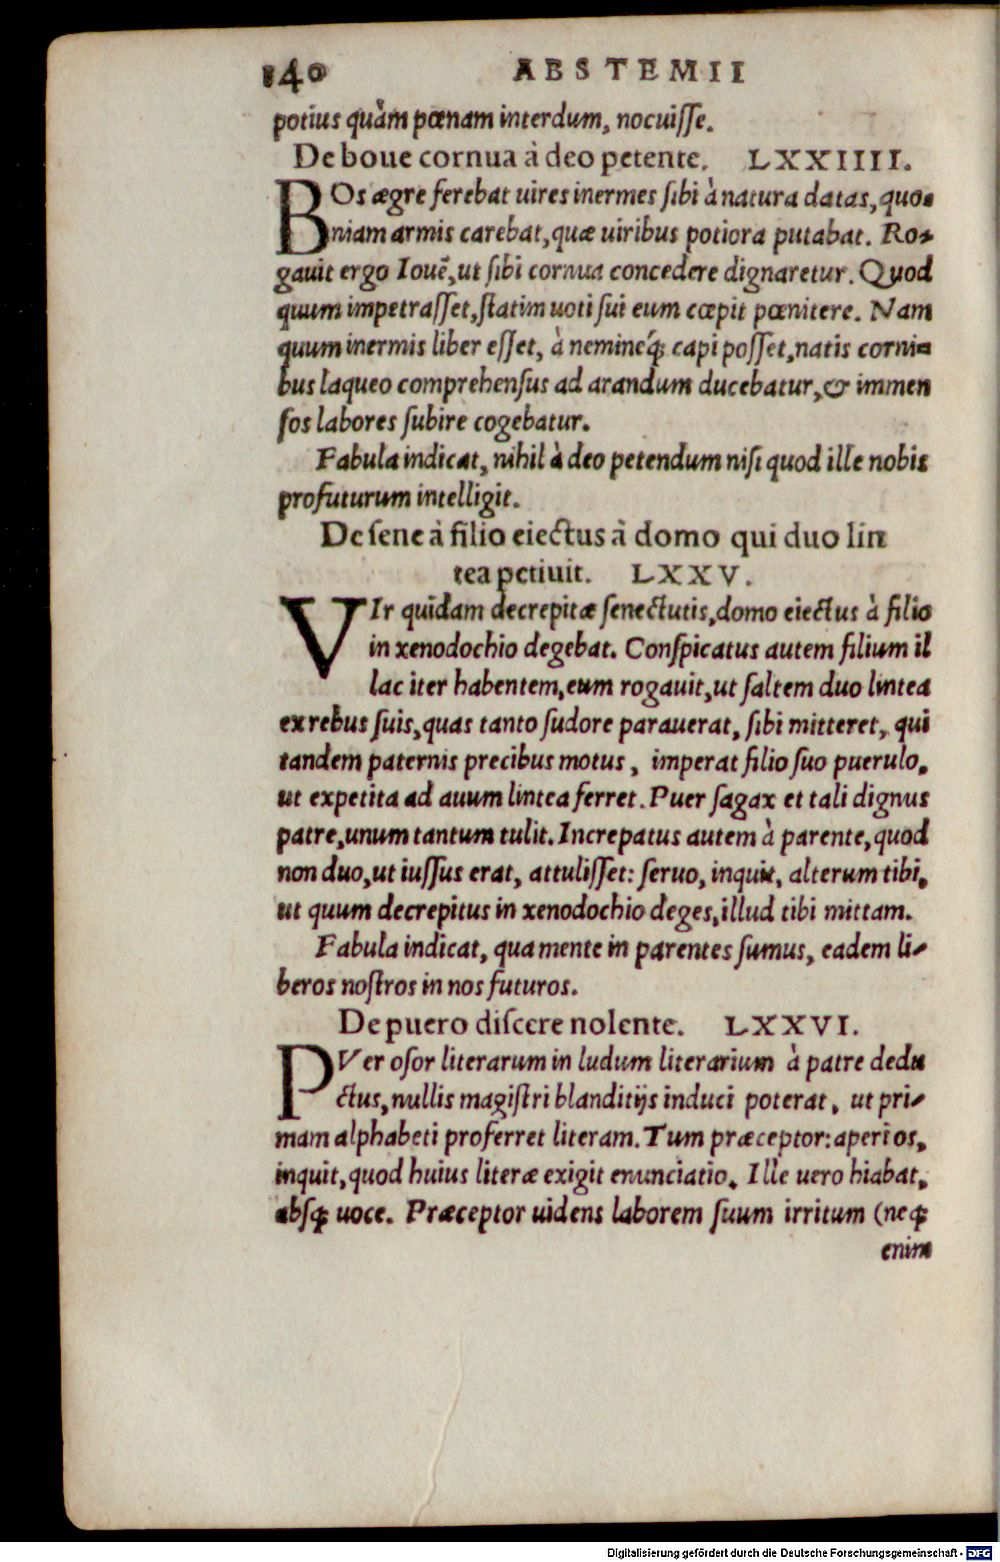 140 ABSTEMII
potius quàm pœnam interdum, nocuisse.
De boue cornua à deo petente. LXXIIII.
BOs ægre ferebat uires inermes sibi à natura datas, quo-
niam armis carebat, quæ uiribus potiora putabat. Ro-
gauit ergo Iouē, ut sibi cornua concedere dignaretur. Quod
quum impetrasset, statim uoti sui eum cœpit pœnitere. Nam
quum inermis liber esset, à nemineq́; capi posset, natis corni-
bus laqueo comprehensus ad arandum ducebatur, & immen
sos labores subire cogebatur.
Fabula indicat, nihil à deo petendum nisi quod ille nobis
profuturum intelligit.
De sene à filio eiectus à domo qui duo lin
tea petiuit. LXXV.
VIr quidam decrepitæ senectutis, domo eiectus à filio
in xenodochio degebat. Conspicatus autem filium il
lac iter habentem, eum rogauit, ut saltem duo lintea
ex rebus suis, quas tanto sudore parauerat, sibi mitteret, qui
tandem paternis precibus motus, imperat filio suo puerulo,
ut expetita ad auum lintea ferret. Puer sagax et tali dignus
patre, unum tantum tulit. Increpatus autem à parente, quod
non duo, ut iussus erat, attulisset: seruo, inquit, alterum tibi,
ut quum decrepitus in xenodochio deges, illud tibi mittam.
Fabula indicat, qua mente in parentes sumus, eadem li-
beros nostros in nos futuros.
De puero discere nolente. LXXVI.
PVer osor literarum in ludum literarium à patre dedu
ctus, nullis magistri blanditijs induci poterat, ut pri-
mam alphabeti proferret literam. Tum præceptor: aperi os,
inquit, quod huius literæ exigit enunciatio. Ille uero hiabat,
absq; uoce. Præceptor uidens laborem suum irritum (neq;
enim
Digitalisierung gefördert durch die Deutsche Forschungsgemeinschaft - DFG